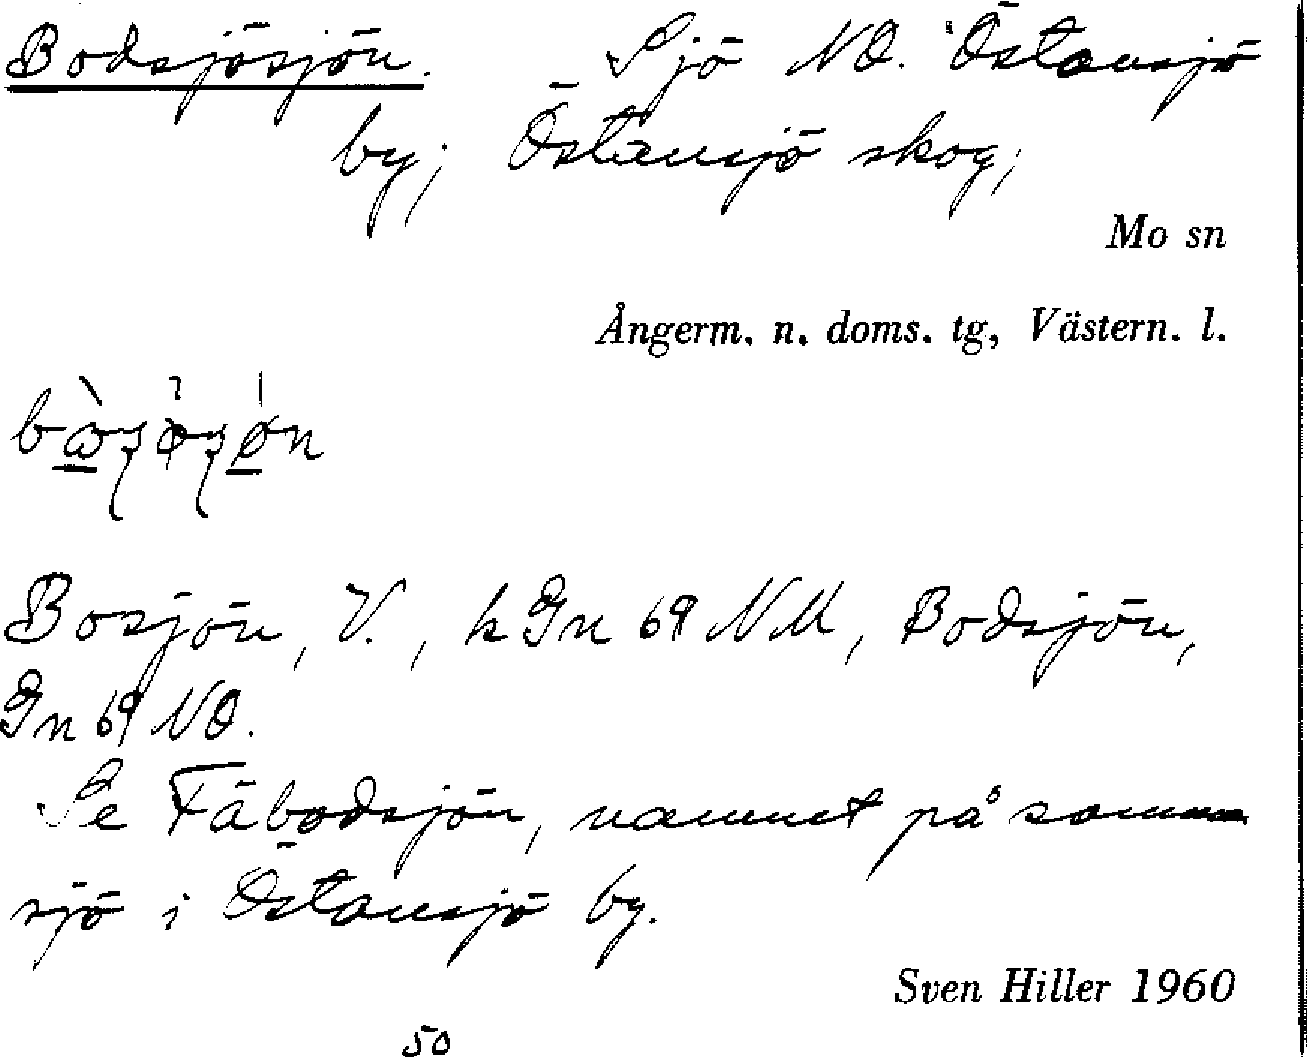 Bodsjösjön. Sjö NO. Östansjö
by; Östansjö skog;
Mo sn
Ångerm. n. doms. tg, Västern. l.
Bosjön, V., k Gn 69 NM, Bodsjön,
Gn 69 NO.
Se Fäbodsjön, namnet på samma
sjö i Östansjö by.
Sven Hiller 1960
50